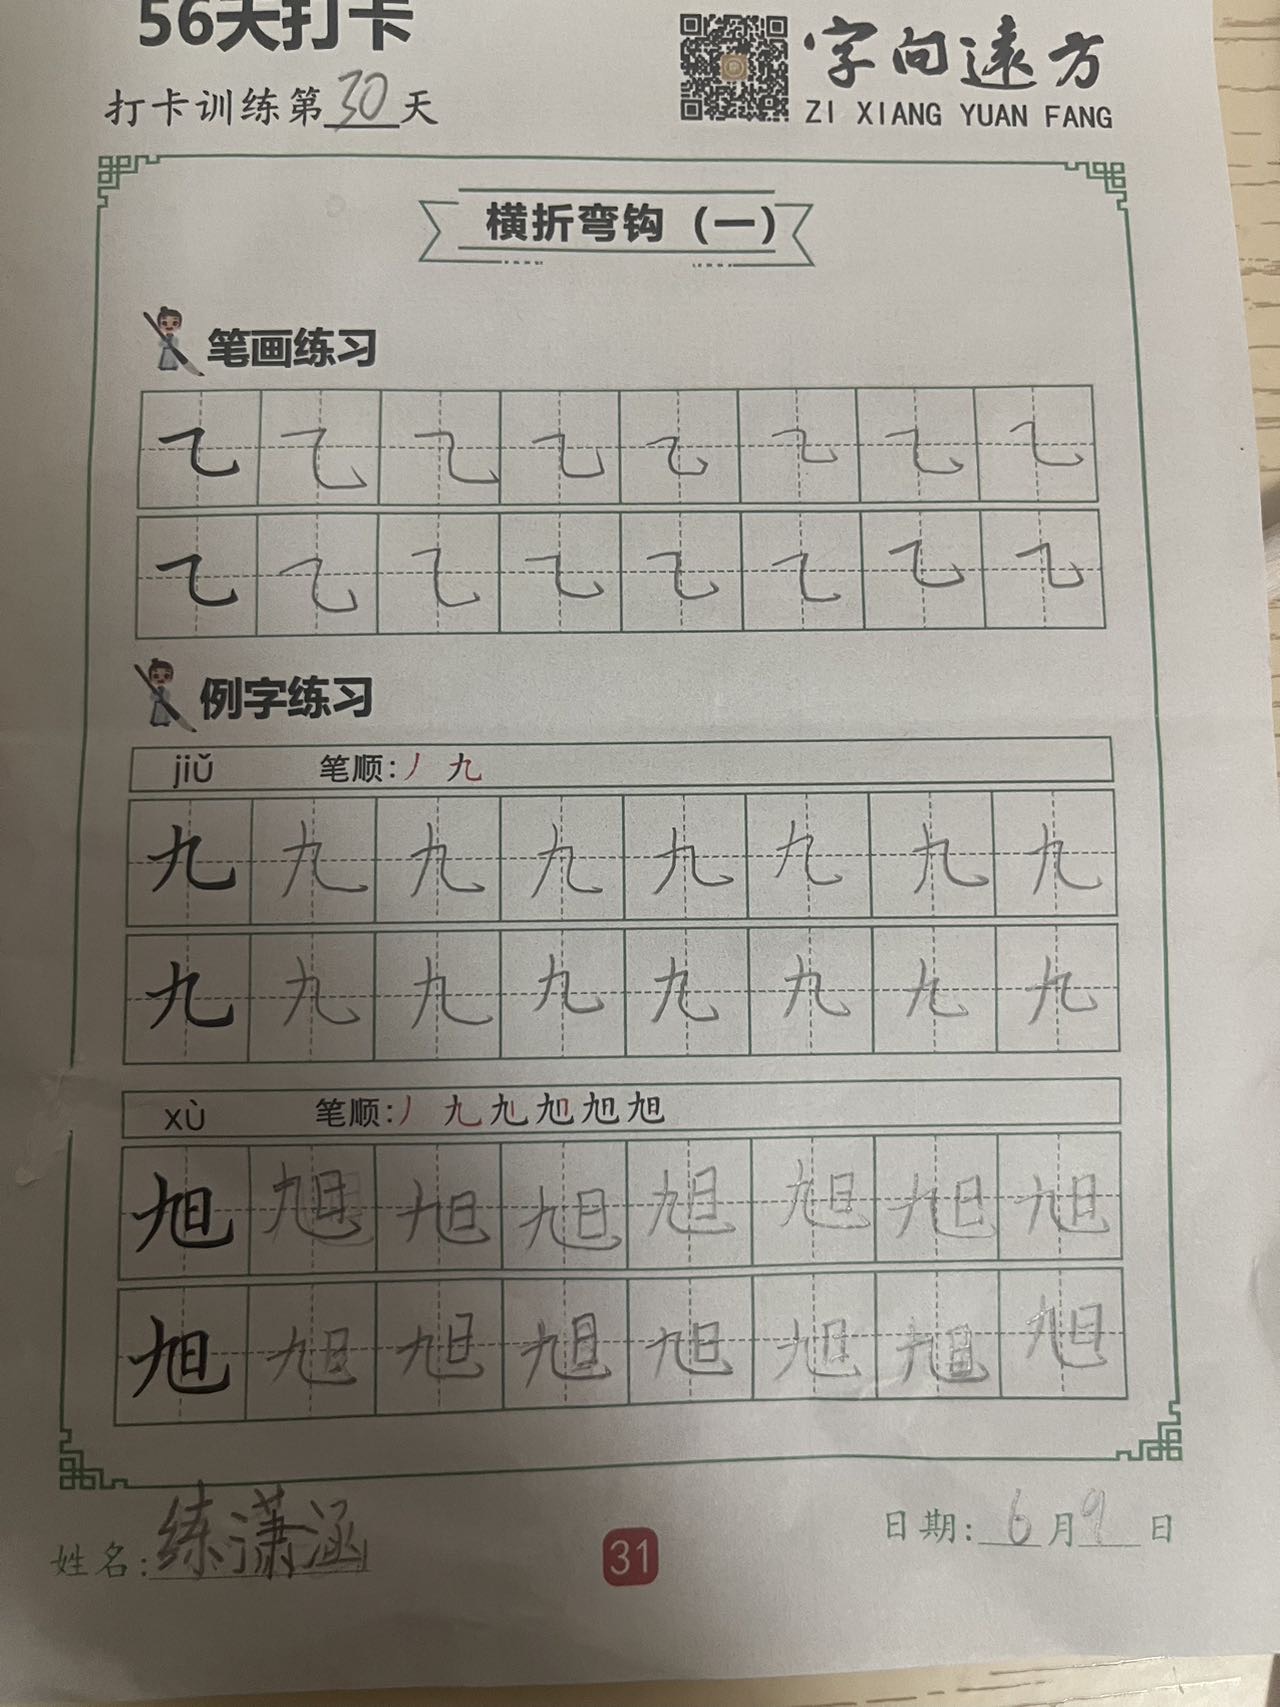 56天打卡
字向远方
ZI XIANG YUAN FANG
打卡训练第30天
横折弯钩（一）
笔画练习
乙 乙 乙 乙 乙 乙 乙 乙
乙 乙 乙 乙 乙 乙 乙 乙
例字练习
jiǔ 笔顺:丿 九
九 九 九 九 九 九 九 九
九 九 九 九 九 九 九 九
xù 笔顺:丿 九 九 旭 旭 旭
旭 旭 旭 旭 旭 旭 旭 旭
旭 旭 旭 旭 旭 旭 旭 旭
姓名:练潇涵
31
日期:6月9日